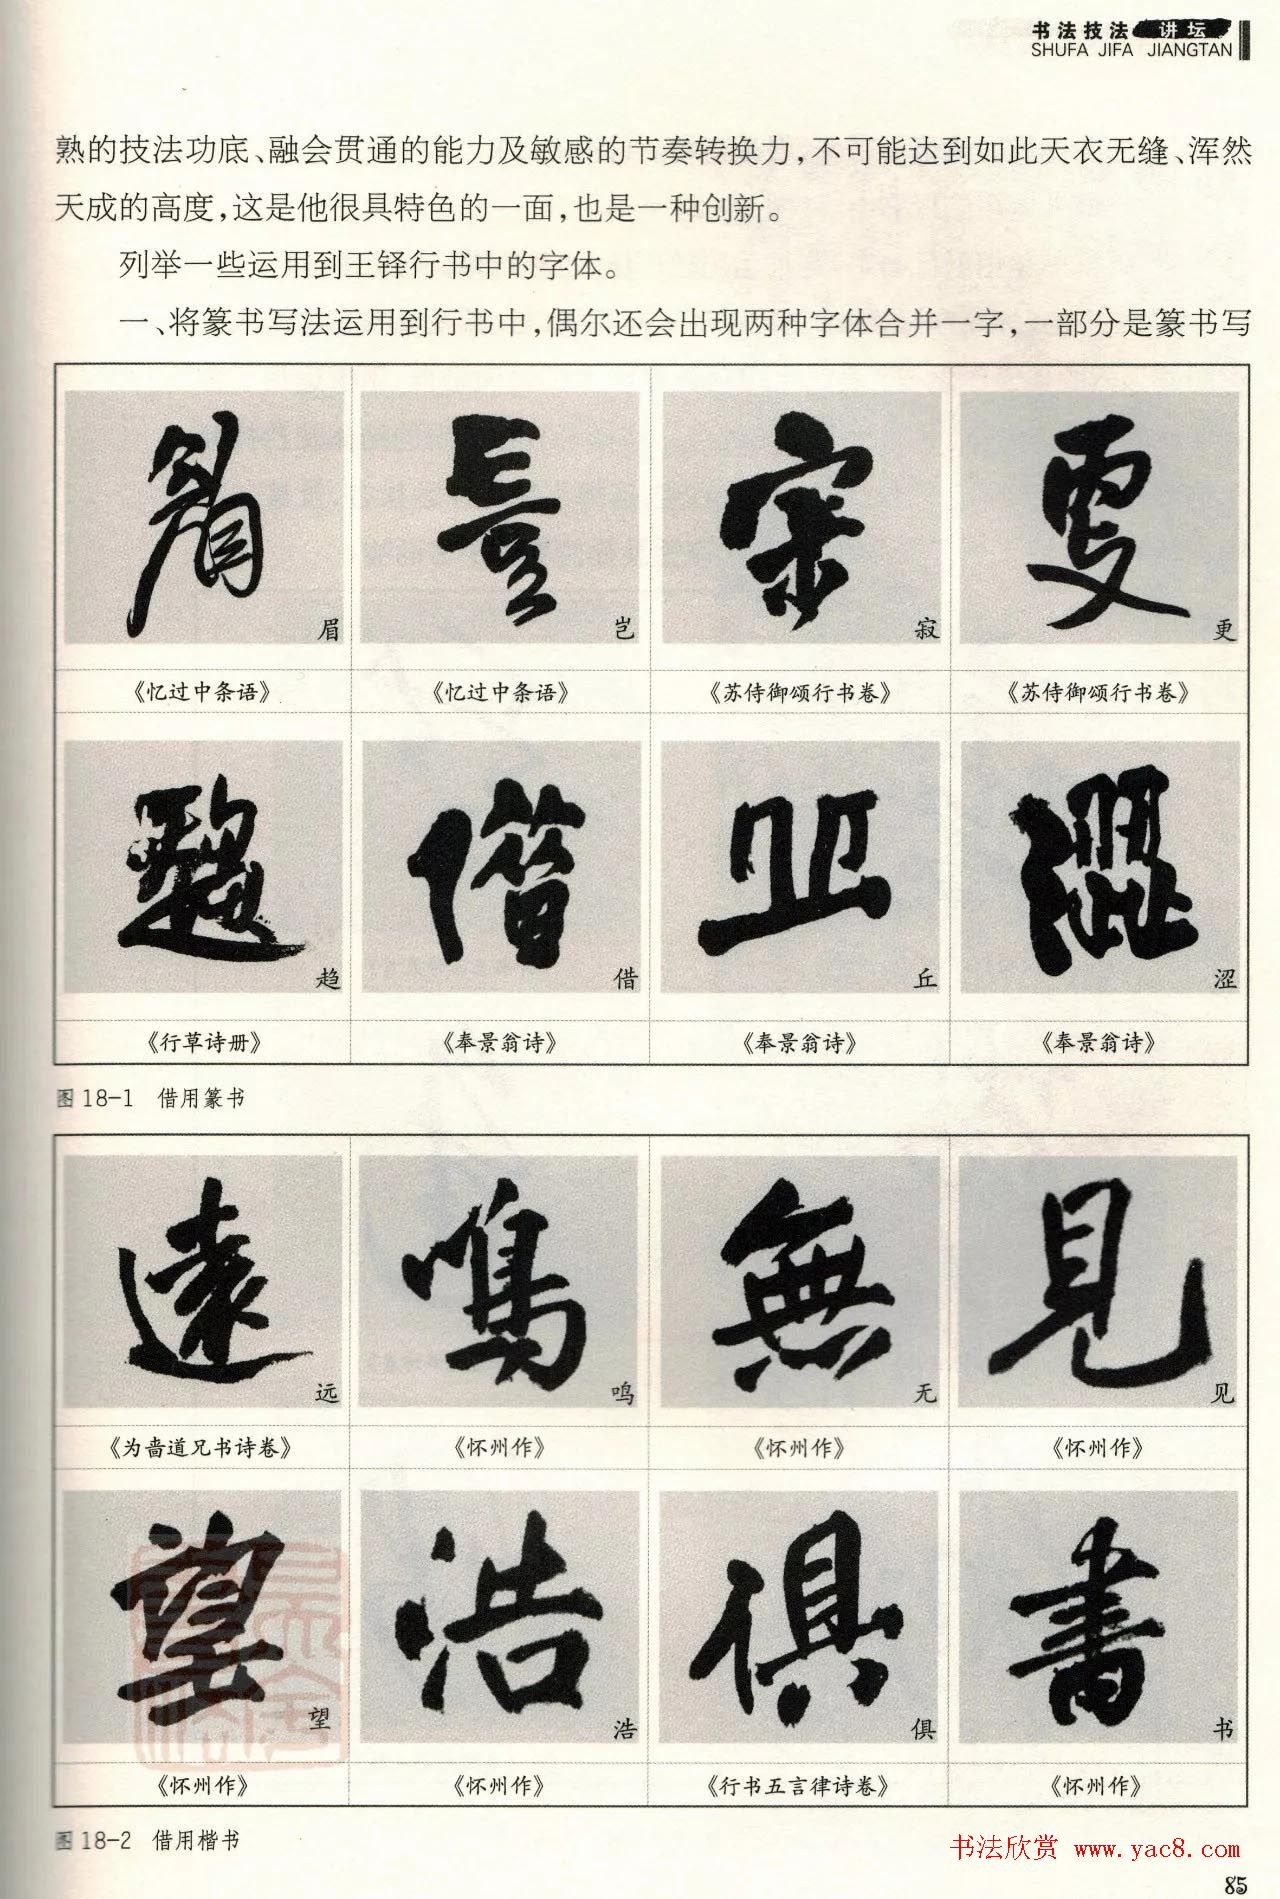 书法技法 讲坛
SHUFA JIFA JIANGTAN
熟的技法功底、融会贯通的能力及敏感的节奏转换力，不可能达到如此天衣无缝、浑然
天成的高度，这是他很具特色的一面，也是一种创新。
列举一些运用到王铎行书中的字体。
一、将篆书写法运用到行书中，偶尔还会出现两种字体合并一字，一部分是篆书写
眉 岂 寂 更
《忆过中条语》 《忆过中条语》 《苏侍御颂行书卷》 《苏侍御颂行书卷》
趋 借 丘 涩
《行草诗册》 《奉景翁诗》 《奉景翁诗》 《奉景翁诗》
图 18-1 借用篆书
遠 鳴 無 見
远 鸣 无 见
《为啬道兄书诗卷》 《怀州作》 《怀州作》 《怀州作》
望 浩 俱 書
望 浩 俱 书
《怀州作》 《怀州作》 《行书五言律诗卷》 《怀州作》
图 18-2 借用楷书
书法欣赏 www.yac8.com
85